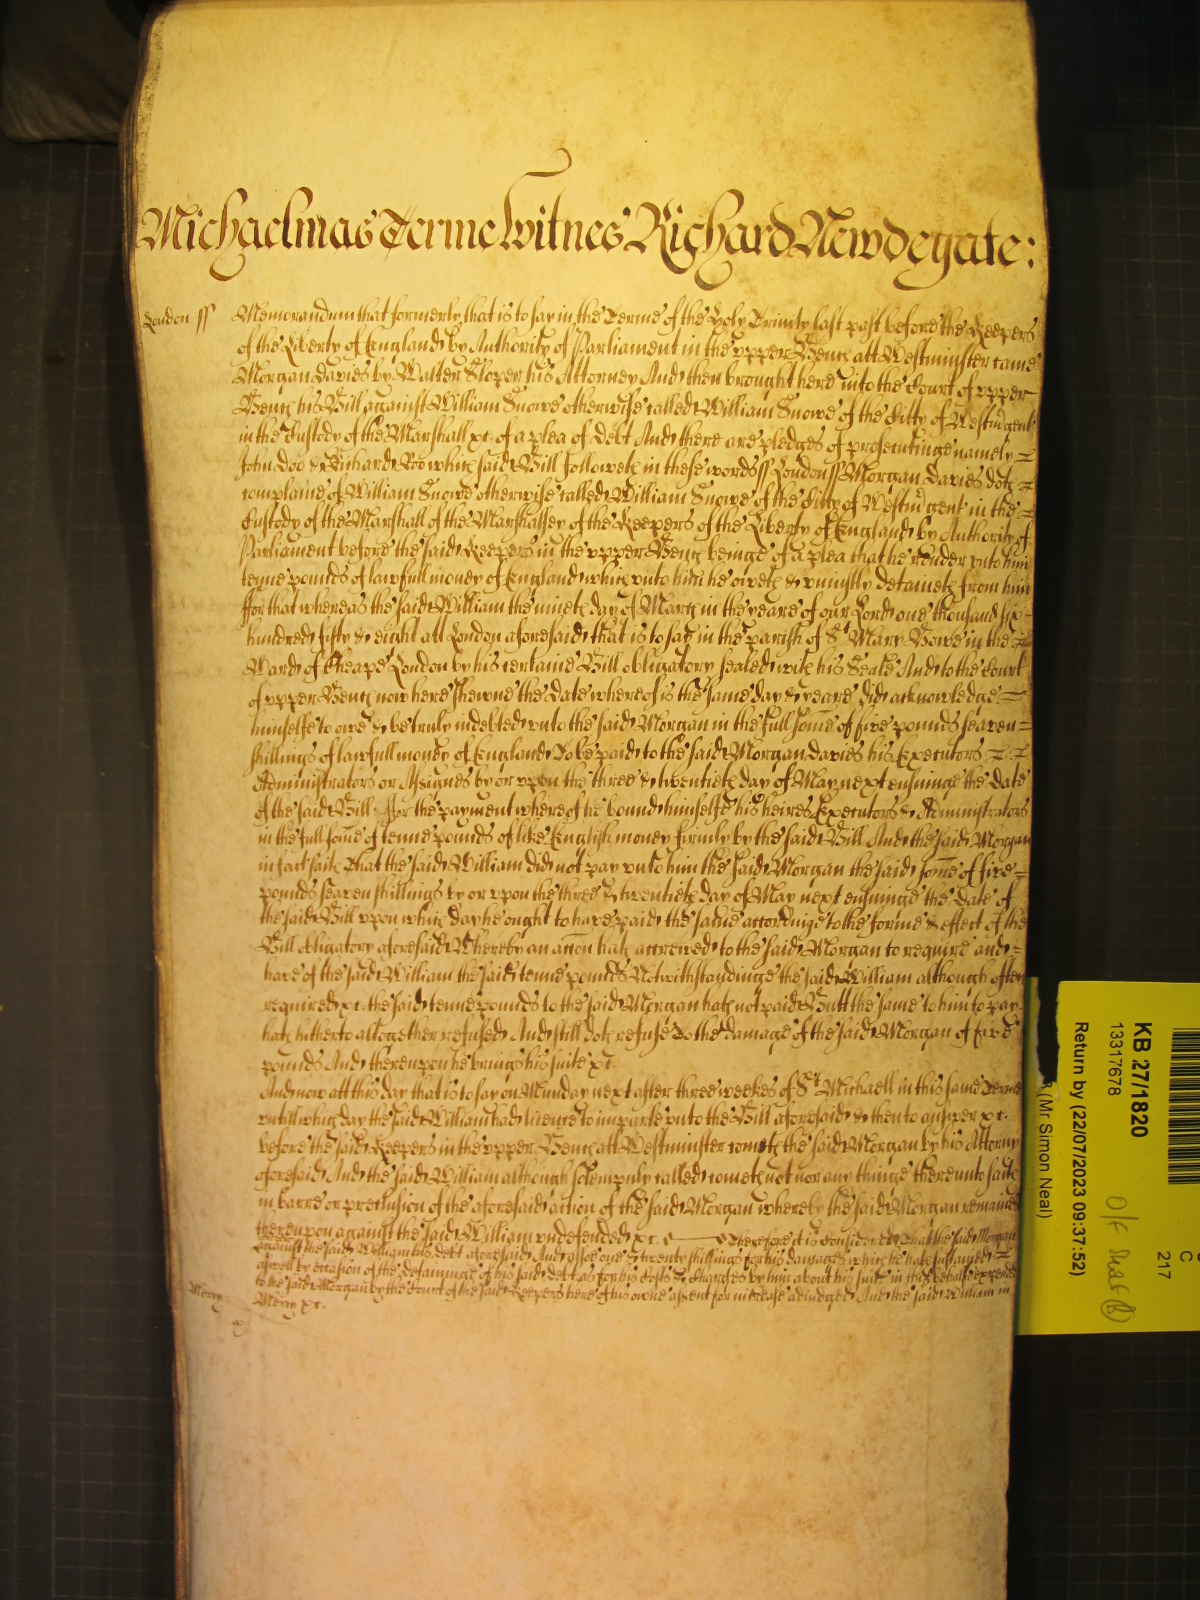 Michaelmas Terme Witnes Richard Newdegate:
London ss Memorandum that formerly that is to say in the Terme of the Holy Trinity last past before the Keepers
of the Liberty of England by Authority of Parliament in the vpper Bench att Westminster came
Morgan Davies by Walter Sloper his Attorney And then brought here into the Court of vpper
Bench his Bill against William Snowe otherwise called William Snowe of the Citty of Westm gent
in the Custody of the Marshall xc. of a plea of Debt And there are pledges of prosecutinge namely
John Doo & Richard Roo which said Bill followeth in these words ss London ss Morgan Davies doth
complaine of William Snowe otherwise called William Snowe of the Citty of Westm gent in the
Custody of the Marshall of the Marshalsey of the Keepers of the Liberty of England by Authority of
Parliament before the said Keepers in the vpper Bench beinge of a plea that he render vnto him
tenne pounds of lawfull money of England which vnto him he oweth & vniustly detaineth from him
ffor that whereas the said William the nineth day of March in the yeare of our Lord one thousand six
hundred fifty & eight att London aforesaid that is to say in the parish of St Mary Bowe in the
Ward of Cheape London by his certaine Bill obligatory sealed with his Seale And to the Court
of vpper Bench now here shewne the Date whereof is the same day & yeare did acknowledge
himselfe to owe & be truly indebted vnto the said Morgan in the full some of five pounds seaven
shillings of lawfull money of England To be paid to the said Morgan Davies his Executors
Administrators or Assignes by or vpon the three & twentieth day of May next ensuinge the Date
of the said Bill ffor the payment whereof he bound himselfe his heires Executors & Administrators
in the full some of tenne pounds of like English money firmly by the said Bill And the said Morgan
in fact saith That the said William did not pay vnto him the said Morgan the said some of five
pounds seaven shillings by or vpon the three & twentieth day of May next ensuinge the Date of
the said Bill vpon which day he ought to have paid the same accordinge to the forme & effect of the
Bill obligatory aforesaid Whereby an accon hath accrewed to the said Morgan to require and
have of the said William the said tenne pounds Notwithstandinge the said William although often
required xc. the said tenne pounds to the said Morgan hath not paid Butt the same to him to pay
hath hitherto altogether refused And still doth refuse To the damage of the said Morgan of five
pounds And thereupon he brings his suite xc.
And now att this day that is to say on Munday next after three weekes of St Michaell in this same Terme
vntill which day the said William had licence to imparle vnto the Bill aforesaid & then to answer xc.
before the said Keepers in the vpper Bench att Westminster cometh the said Morgan by his Attorny
aforesaid And the said William although solempnly called cometh not nor any thinge thereunto saith
in barre or preclusion of the aforesaid action of the said Morgan whereby the said Morgan remaines
thereupon against the said William vndefended xc. Therefore it is considered that the said Morgan
against the said William his debt aforesaid And alsoe one & twenty shillings for his damages which he hath sustayned
aswell by occasion of the detaininge of his said debt as for his costs & Charges by him about his suite in this behalfe expended
to the said Morgan by the Court of the said Keepers here of his owne assent for increase adiudged And the said William in
Mercy Mercy xc.
KB 27/1820
13317678
Return by (22/07/2023 09:37:52)
(Mr Simon Neal)
C
217